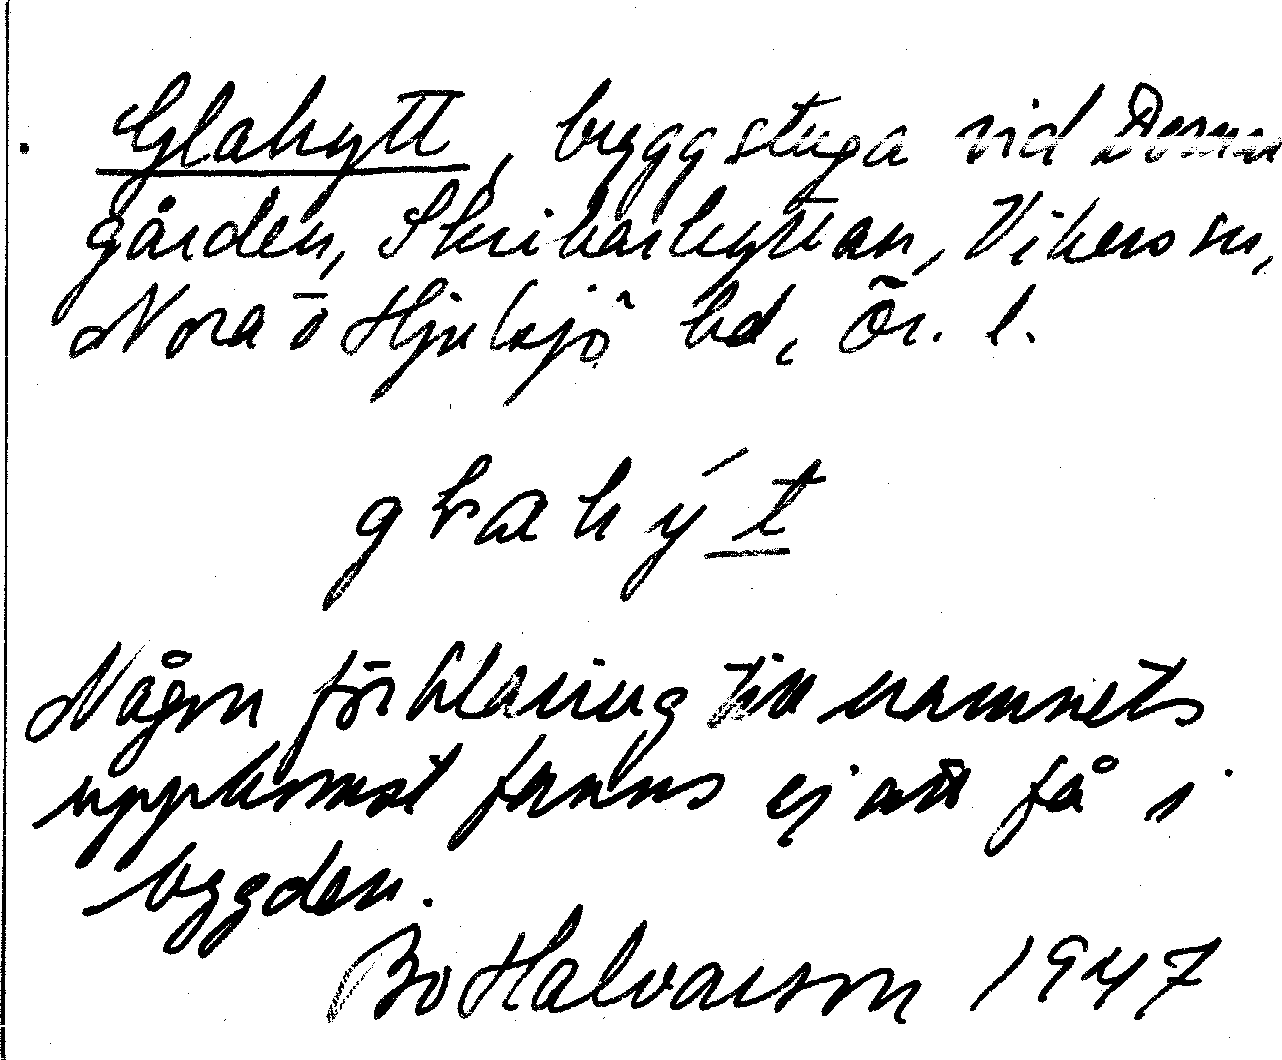 Glahytt, byggstuga vid
gården, Skrikarhyttan, Vikers sn,
Nora o Hjulsjö bd, Ör. l.
Någon förklaring till namnets
uppkomst fanns ej att få i
bygden.
Bo Halvarson 1947